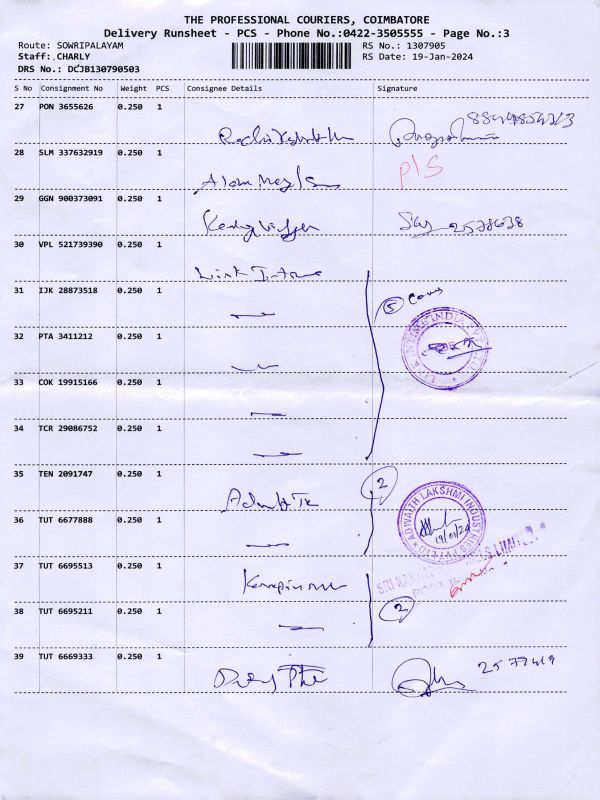 THE PROFESSIONAL COURIERS, COIMBATORE
Delivery Runsheet - PCS - Phone No.:0422-3505555 - Page No.:3
Route: SOWRIPALAYAM
RS No.: 1307905
Staff: CHARLY
RS Date: 19-Jan-2024
DRS No.: DCJB130790503
S No Consignment No Weight PCS Consignee Details Signature
27 PON 3655626 0.250 1
28 SLM 337632919 0.250 1
P/S
29 GGN 900373091 0.250 1
2578638
30 VPL 521739390 0.250 1
Link Intime
31 IJK 28873518 0.250 1
5
32 PTA 3411212 0.250 1
33 COK 19915166 0.250 1
34 TCR 29086752 0.250 1
35 TEN 2091747 0.250 1
2
ADWAITH LAKSHMI INDUSTRIES PVT LTD
36 TUT 6677888 0.250 1
19/01/24
37 TUT 6695513 0.250 1
SRI MILLS LIMITED
38 TUT 6695211 0.250 1
2
39 TUT 6669333 0.250 1
2577419